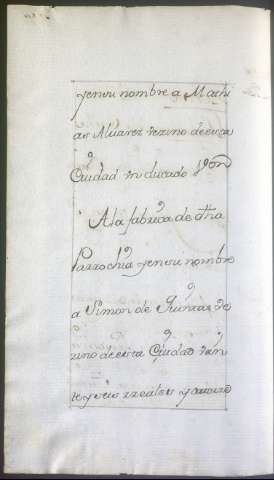 yensu nombre a Mathi
as Alvarez vezino deesta
Ciudad un ducado Von
A la fabrica de dha
Parrochia yensu nombre
a Simon de
zino deesta Ciudad vein
te y seis rreales y